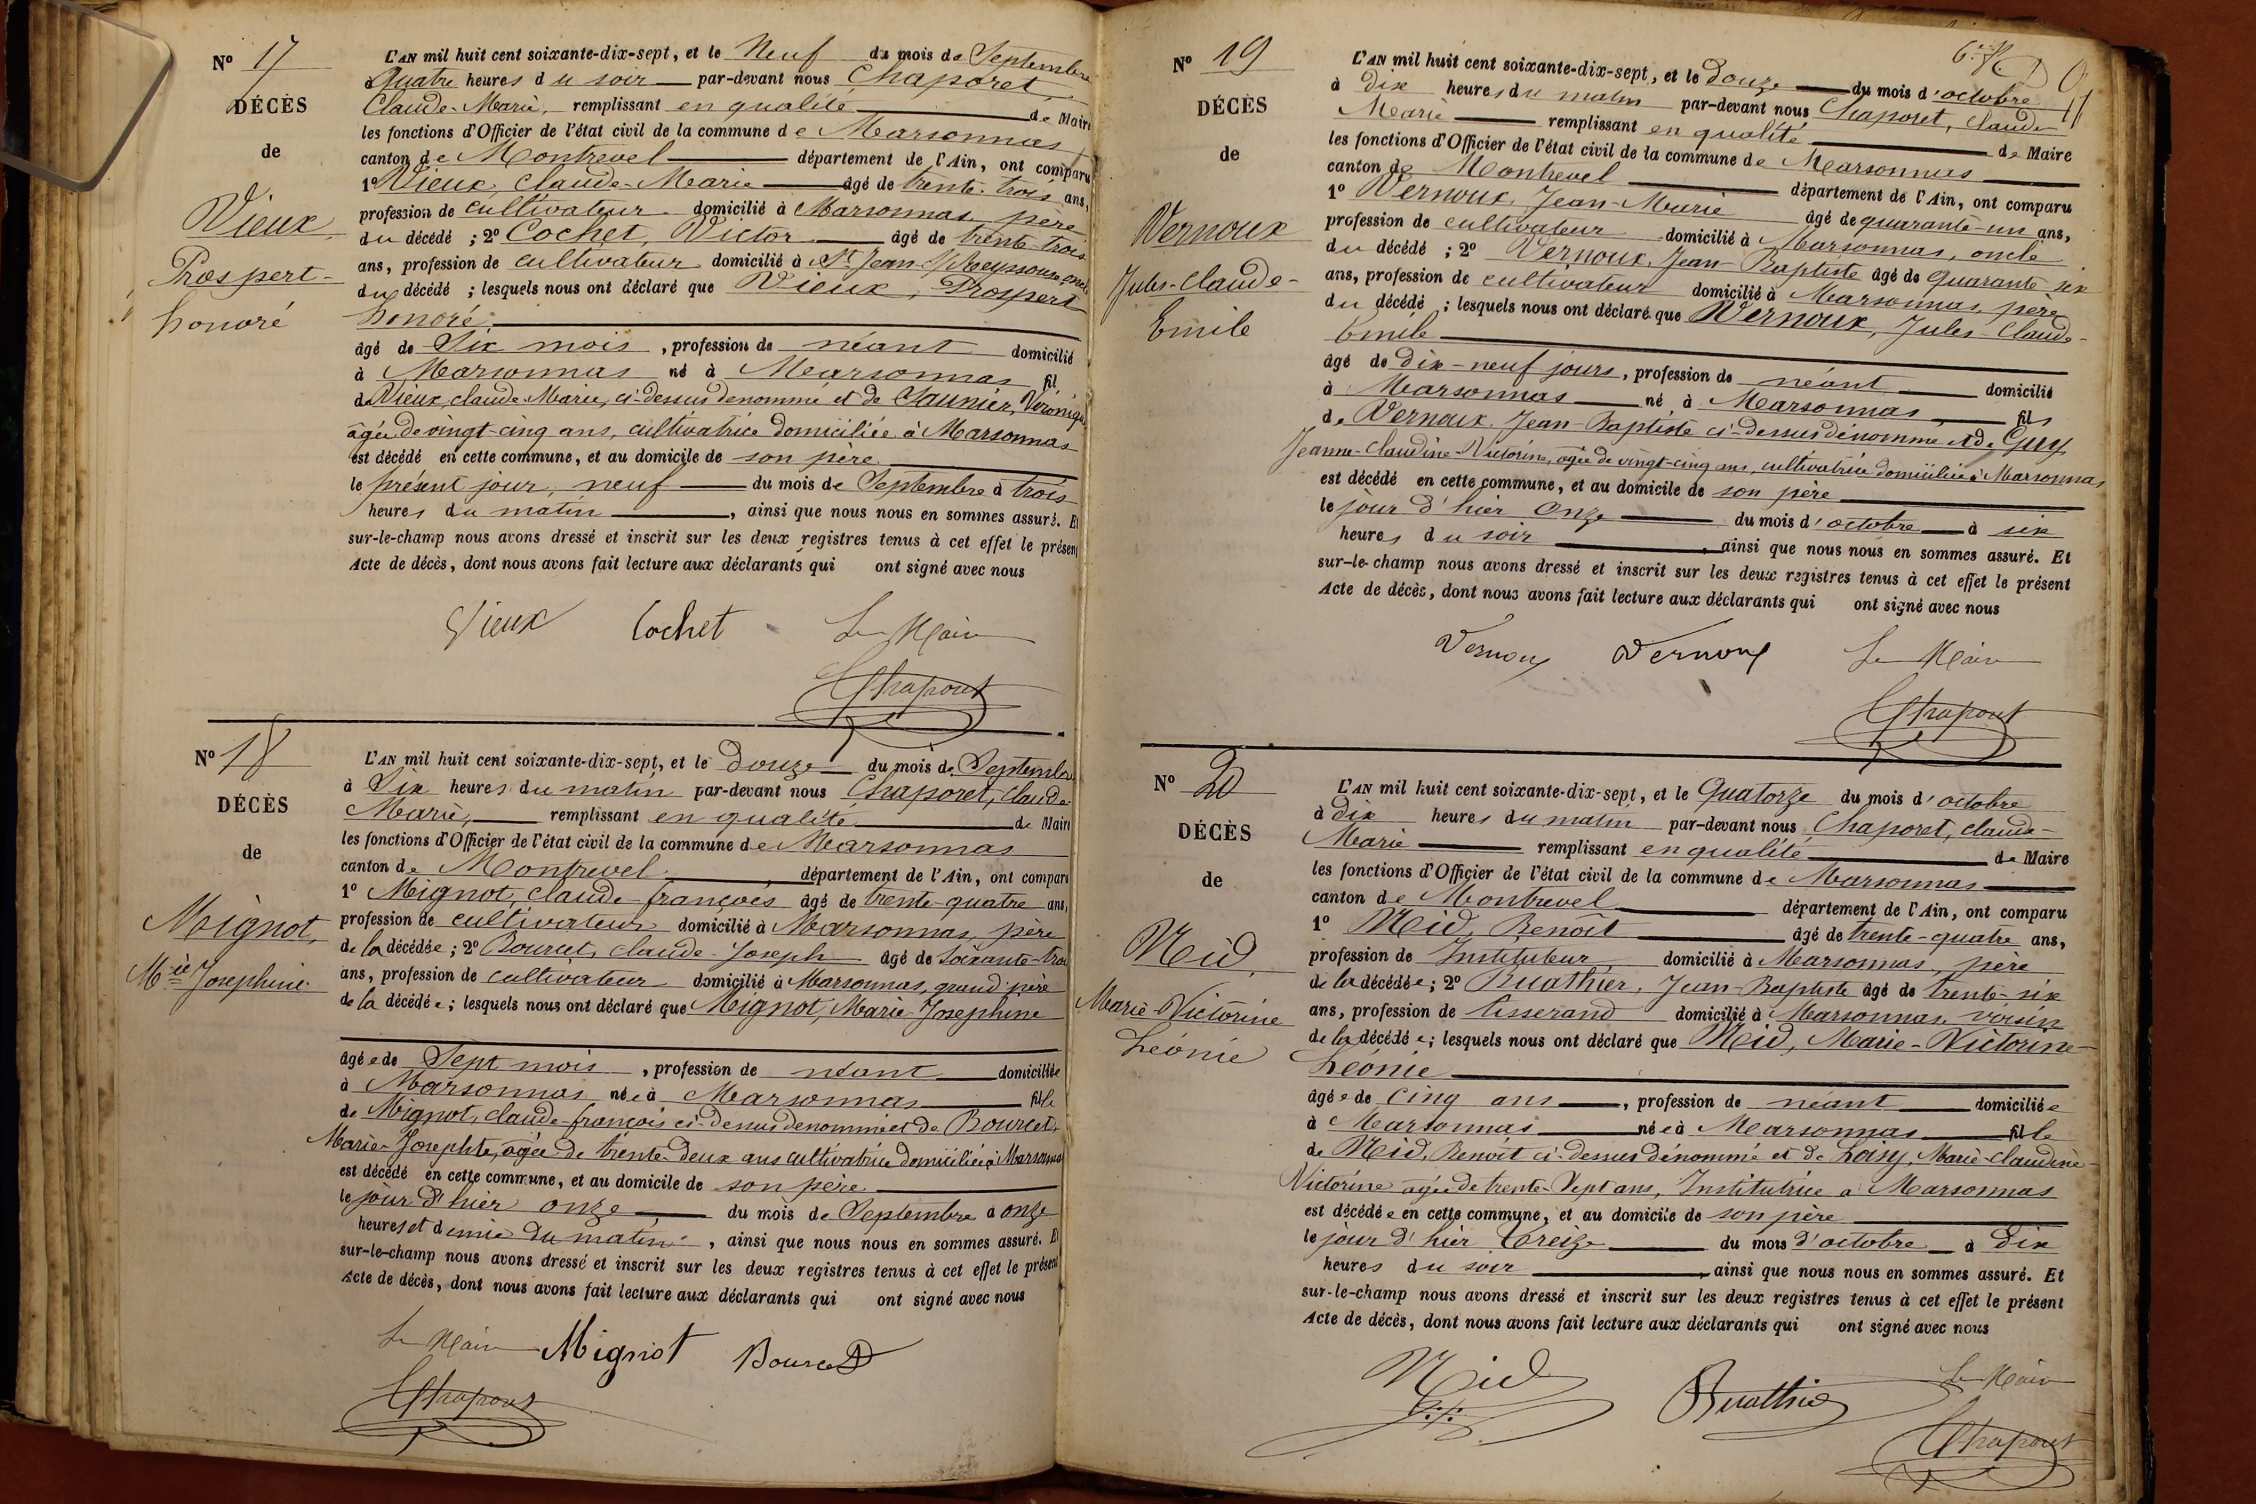 Nº 17
DÉCÈS
de
Vieux,
Prospert-
honoré
L'AN mil huit cent soixante-dix-sept, et le Neuf du mois de Septembre
à Quatre heures du soir par-devant nous Chaporet,
Claude-Marie, remplissant en qualité de Maire
les fonctions d'Officier de l'état civil de la commune de Marsonnas
canton de Montrevel département de l'Ain, ont comparu
1º Vieux, Claude-Marie âgé de trente-trois ans,
profession de cultivateur domicilié à Marsonnas, père
du décédé ; 2º Cochet, Victor âgé de trente-trois
ans, profession de cultivateur domicilié à St Jean-s/-Reyssouze, oncle
du décédé ; lesquels nous ont déclaré que Vieux, Prospert
honoré
âgé de Six mois, profession de néant domicilié
à Marsonnas né à Marsonnas fil
de Vieux, claude-Marie, ci-dessus denommé et de Saunier, Véronique
âgée de vingt-cinq ans, cultivatrice domiciliée à Marsonnas
est décédé en cette commune, et au domicile de son père
le présent jour, neuf du mois de Septembre à trois
heures du matin, ainsi que nous nous en sommes assuré. Et
sur-le-champ nous avons dressé et inscrit sur les deux registres tenus à cet effet le présent
Acte de décès, dont nous avons fait lecture aux déclarants qui ont signé avec nous
Vieux Cochet Le Maire
Chaporet
Nº 18
DÉCÈS
de
Mignot,
Mie Josephine
L'AN mil huit cent soixante-dix-sept, et le Douze du mois de Septembre
à Six heures du matin par-devant nous Chaporet, Claude
Marie, remplissant en qualité de Maire
les fonctions d'Officier de l'état civil de la commune de Marsonnas
canton de Montrevel département de l'Ain, ont comparu
1º Mignot, Claude-françois âgé de trente-quatre ans,
profession de cultivateur domicilié à Marsonnas, père
de la décédée ; 2º Bourcet, claude-Joseph âgé de soixante-trois
ans, profession de cultivateur domicilié à Marsonnas, grand père
de la décédée ; lesquels nous ont déclaré que Mignot, Marie-Josephine
âgée de Sept mois, profession de néant domiciliée
à Marsonnas née à Marsonnas fille
de Mignot, claude-françois ci-dessus denommé et de Bourcet,
Marie-Josephte, âgée de trente-deux ans cultivatrice domiciliée à Marsonnas
est décédé en cette commune, et au domicile de son père
le jour d'hier onze du mois de Septembre à onze
heures et demie du matin, ainsi que nous nous en sommes assuré. Et
sur-le-champ nous avons dressé et inscrit sur les deux registres tenus à cet effet le présent
Acte de décès, dont nous avons fait lecture aux déclarants qui ont signé avec nous
Le Maire Mignot Bourcet
Chaporet
Nº 19
DÉCÈS
de
Vernoux
Jules-claude-
Emile
L'AN mil huit cent soixante-dix-sept, et le Douze du mois d'octobre
à Dix heures du matin par-devant nous Chaporet, Claude
Marie remplissant en qualité de Maire
les fonctions d'Officier de l'état civil de la commune de Marsonnas
canton de Montrevel département de l'Ain, ont comparu
1º Vernoux, Jean-Marie âgé de quarante-un ans,
profession de cultivateur domicilié à Marsonnas, oncle
du décédé ; 2º Vernoux, Jean-Baptiste âgé de quarante-six
ans, profession de cultivateur domicilié à Marsonnas, père
du décédé ; lesquels nous ont déclaré que Vernoux, Jules-Claude-
Emile
âgé de dix-neuf jours, profession de néant domicilié
à Marsonnas né à Marsonnas fils
de Vernoux, Jean-Baptiste ci-dessus dénommé et de Guy,
Jeanne-Claudine-Victorine, agée de vingt-cinq ans, cultivatrice domiciliée à Marsonnas
est décédé en cette commune, et au domicile de son père
le jour d'hier Onze du mois d'octobre à six
heures du soir, ainsi que nous nous en sommes assuré. Et
sur-le-champ nous avons dressé et inscrit sur les deux registres tenus à cet effet le présent
Acte de décès, dont nous avons fait lecture aux déclarants qui ont signé avec nous
Vernoux Vernoux Le Maire
Chaporet
Nº 20
DÉCÈS
de
Mid,
Marie-Victorine
Léonie
L'AN mil huit cent soixante-dix-sept, et le Quatorze du mois d'octobre
à dix heures du matin par-devant nous Chaporet, claude-
Marie remplissant en qualité de Maire
les fonctions d'Officier de l'état civil de la commune de Marsonnas
canton de Montrevel département de l'Ain, ont comparu
1º Mid, Benoît âgé de trente-quatre ans,
profession de Instituteur domicilié à Marsonnas, père
de la décédée ; 2º Buathier, Jean-Baptiste âgé de trente-six
ans, profession de tisserand domicilié à Marsonnas, voisin
de la décédée ; lesquels nous ont déclaré que Mid, Marie-Victorine-
Léonie
âgée de Cinq ans, profession de néant domiciliée
à Marsonnas née à Marsonnas fille
de Mid, Benoît ci-dessus dénommé et de Loisy, Marie-Claudine-
Victorine agée de trente-Sept ans, Institutrice a Marsonnas
est décédée en cette commune, et au domicile de son père
le jour d'hier treize du mois d'octobre à Dix
heures du soir, ainsi que nous nous en sommes assuré. Et
sur-le-champ nous avons dressé et inscrit sur les deux registres tenus à cet effet le présent
Acte de décès, dont nous avons fait lecture aux déclarants qui ont signé avec nous
Mid Buathier Le Maire
Chaporet